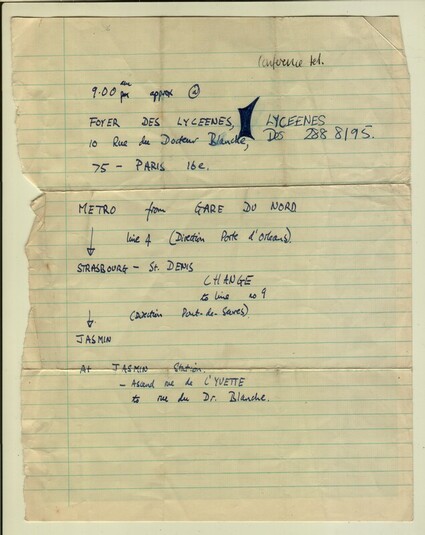 Conference tel.
9.00 am approx @
FOYER DES LYCEENES,
LYCEENES
10 Rue du Docteur Blanche,
DOS 288 8195.
75 - PARIS 16e.
METRO from GARE DU NORD
line 4 (Direction Porte d'Orleans).
STRASBOURG - St. DENIS
CHANGE
to line no 9
(Direction Pont-de-Sevres).
JASMIN
At JASMIN Station.
- Ascend rue de L'YVETTE
to rue du Dr. Blanche.